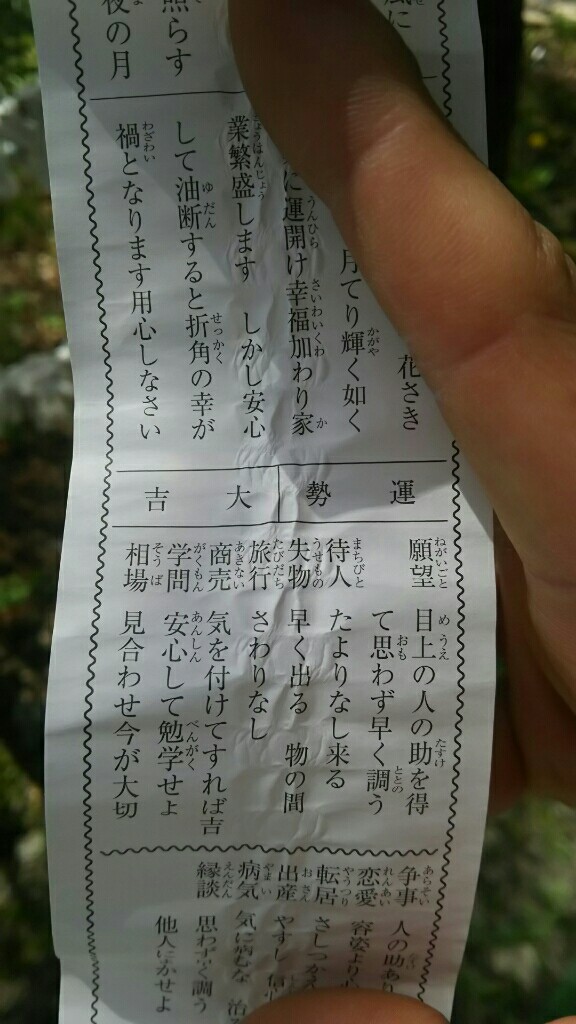 風に
照らす
夜の月
花さき
月てり輝く如く
に運開け幸福加わり家
業繁盛します しかし安心
して油断すると折角の幸が
禍となります用心しなさい
運勢 大吉
願望 目上の人の助を得
て思わず早く調う
待人 たよりなし来る
失物 早く出る 物の間
旅行 さわりなし
商売 気を付けてすれば吉
学問 安心して勉学せよ
相場 見合わせ今が大切
争事 人の助あり
恋愛 容姿より心
転居 さしつかえ
出産 やすし 信心
病気 気に病むな 治る
縁談 思わず早く調う
他人にまかせよ